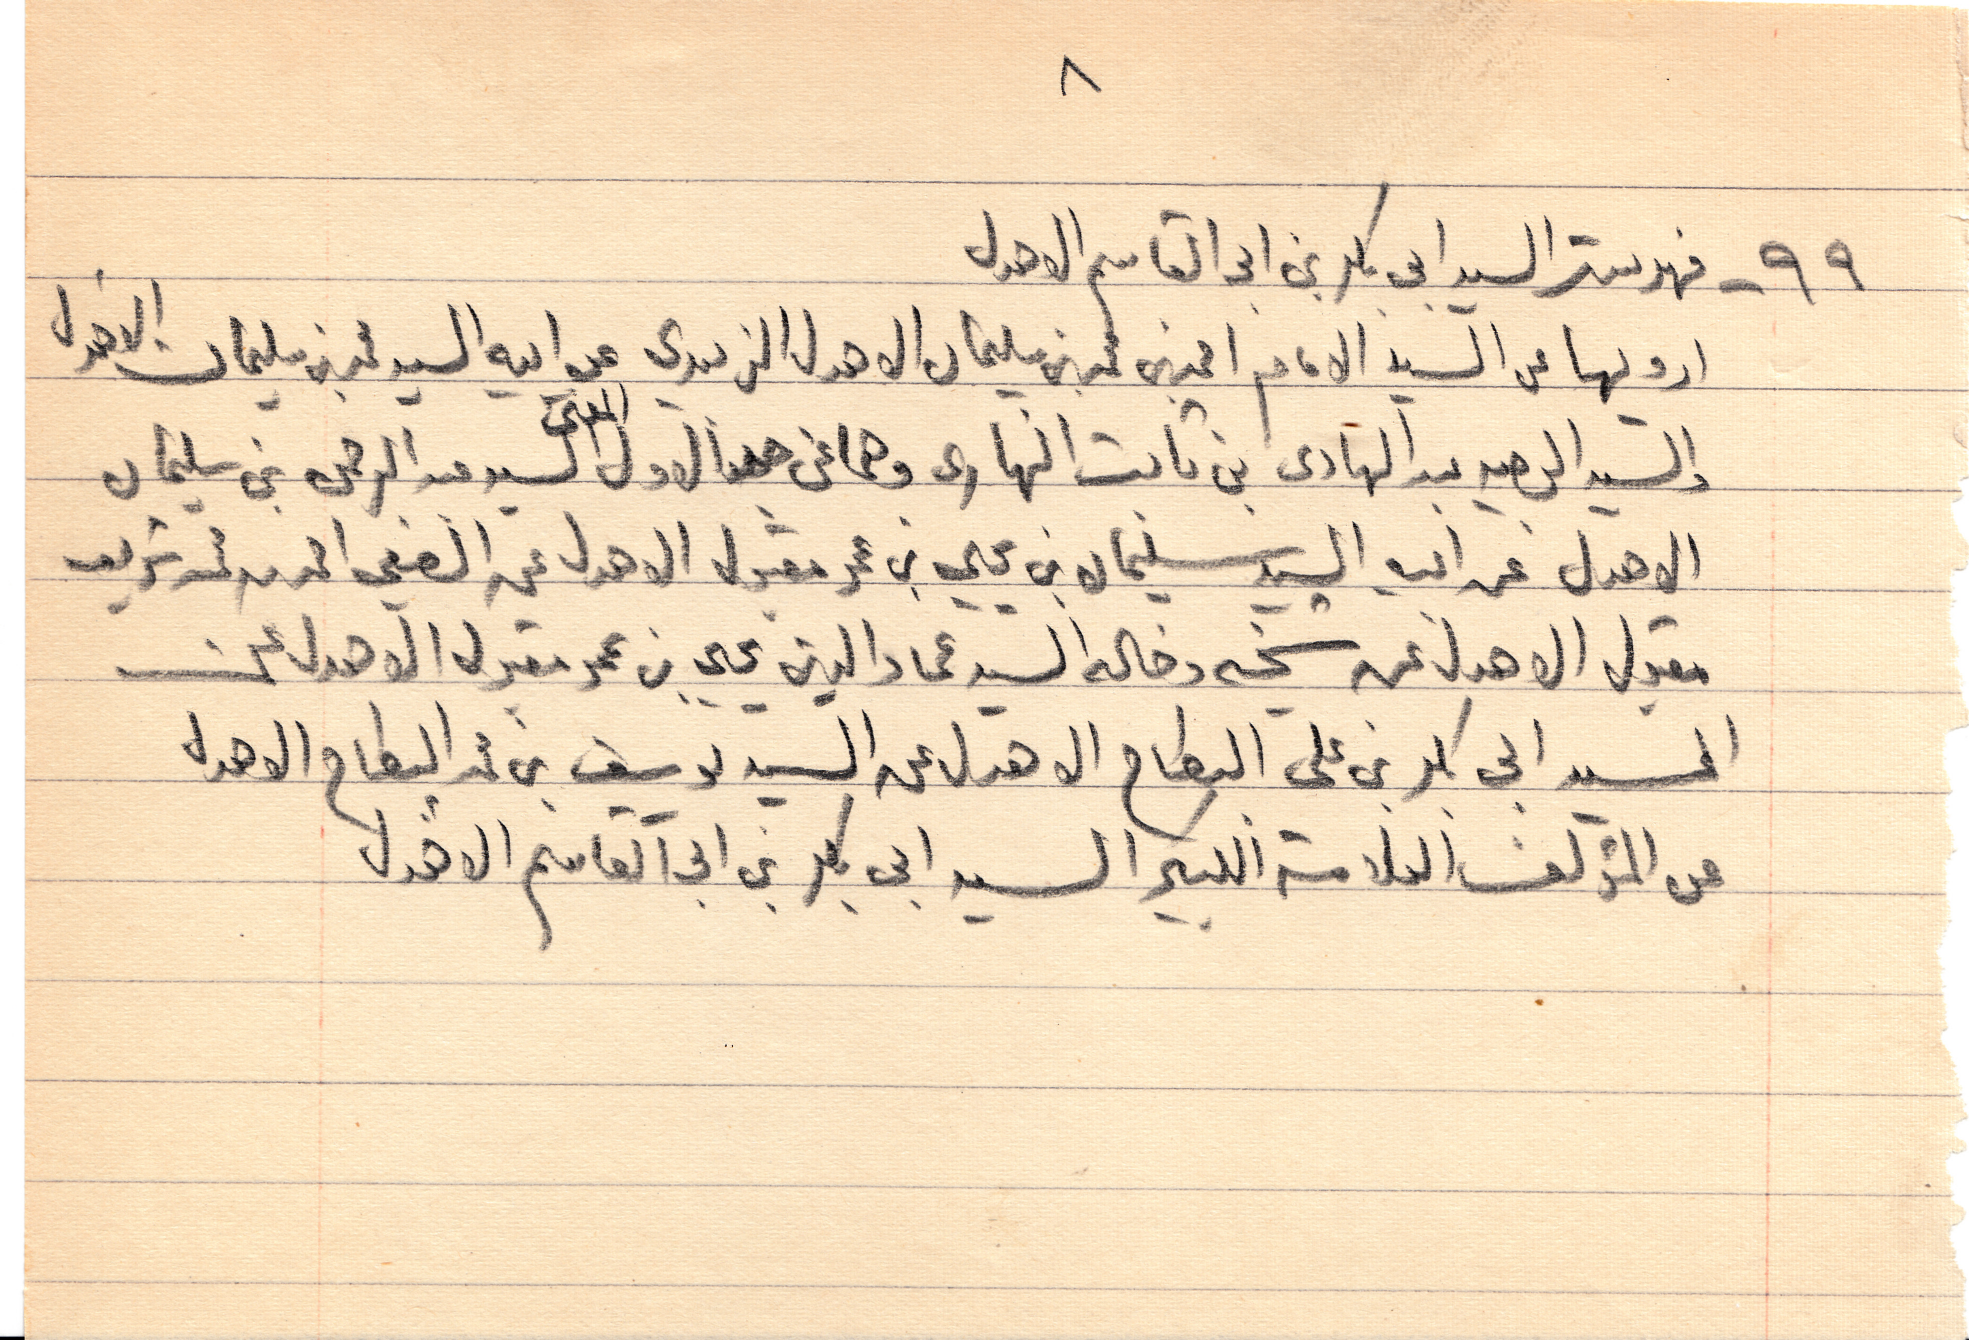 ٨
٩٩ - فهرست السيد ابي بكر بن ابي القاسم الاهدل
ارويها عن السيد الامام احمد بن محمد بن سليمان الاهدل الزبيدي عن ابيه السيد محمد بن سليمان الاهدل
والسيد الوجيه عبد الهادى بن ثابت النهارى وهما عن جد الاول المفتي السيد عبد الرحمن بن سليمان
الاهدل عن ابيه السيد سليمان بن يحيى بن عمر مقبول الاهدل عن الصفي احمد بن محمد شريف
مقبول الاهدل عن شيخه وخاله السيد عماد الدين يحيى بن عمر مقبول الاهدل عن
السيد ابي بكر بن على البطاح الاهدل عن السيد يوسف بن محمد البطاح الاهدل
عن المؤلف العلامة الكبير السيد ابي بكر بن ابي القاسم الاهدل